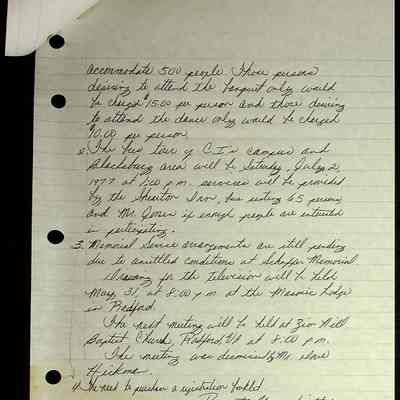 accommodate 500 people. Those persons
desiring to attend the banquet only would
be charged $15.00 per person and those desiring
to attend the dance only would be charged
$10.00 per person.
2. The bus tour of C.I.'s campus and
Blacksburg area will be Saturday, July 2,
1977 at 1:00 p.m. services will be provided
by the Sheraton Inn, bus seating 65 persons
and Mr. Jones if enough people are interested
in participating.
3. Memorial Service arrangements are still pending
due to unsettled conditions at Schaffer Memorial
Drawing for the television will be held
May 31, at 8:00 p m at the Masonic Lodge
in Radford.
The next meeting will be held at Zion Hill
Baptist Church, Radford, VA at 8:00 p.m.
The meeting was dismissed by Mr.
Hickman.
4. The need to purchase a registration booklet